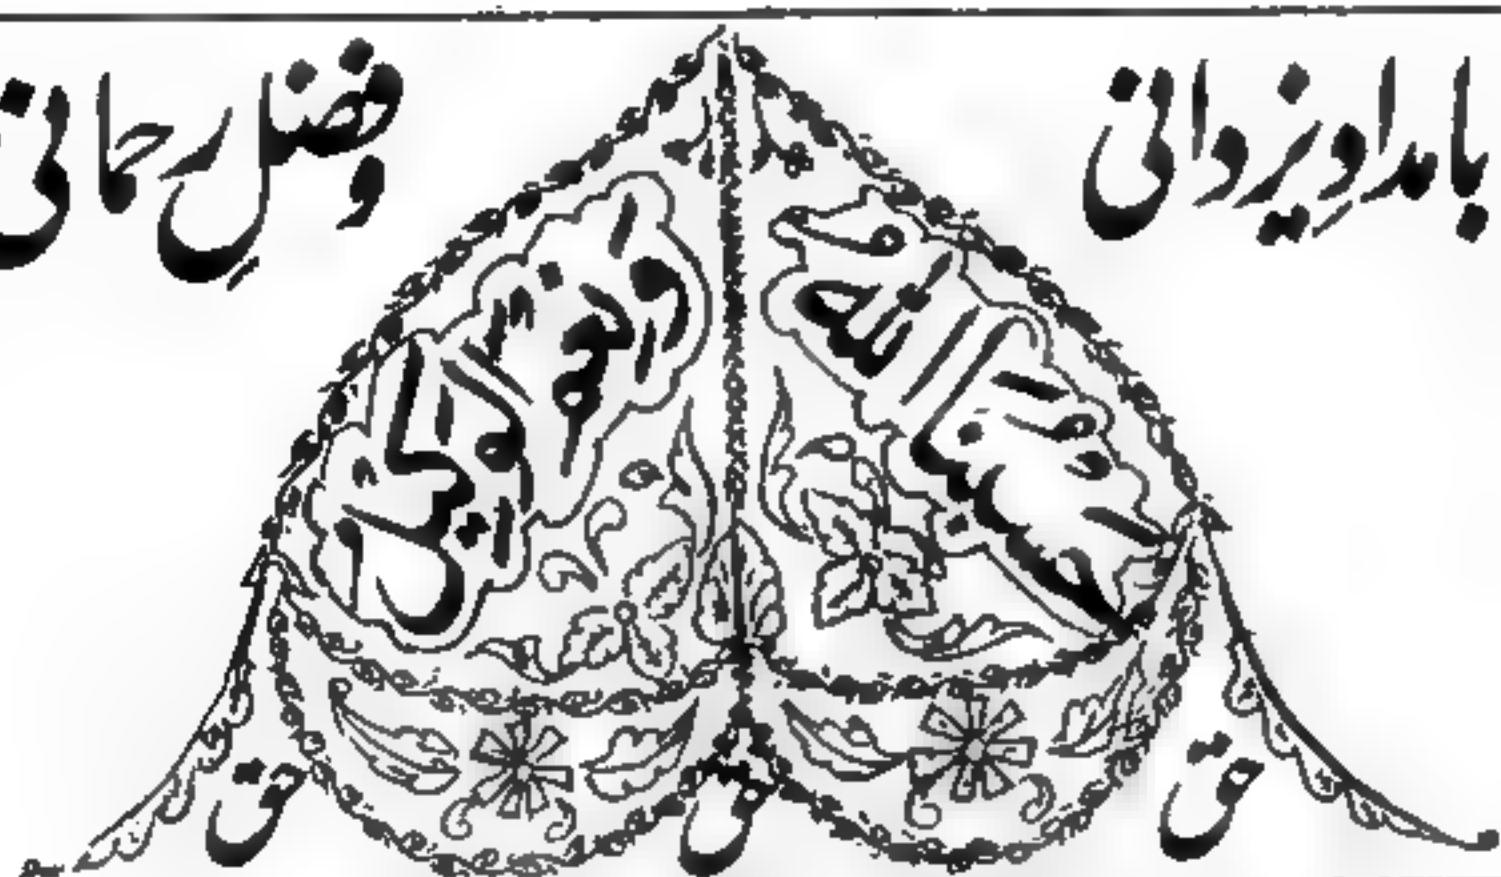 بامدادِ یزدانی وفضلِ رحمانی
حسبنا الله ونعم الوکیل
حق حق حق